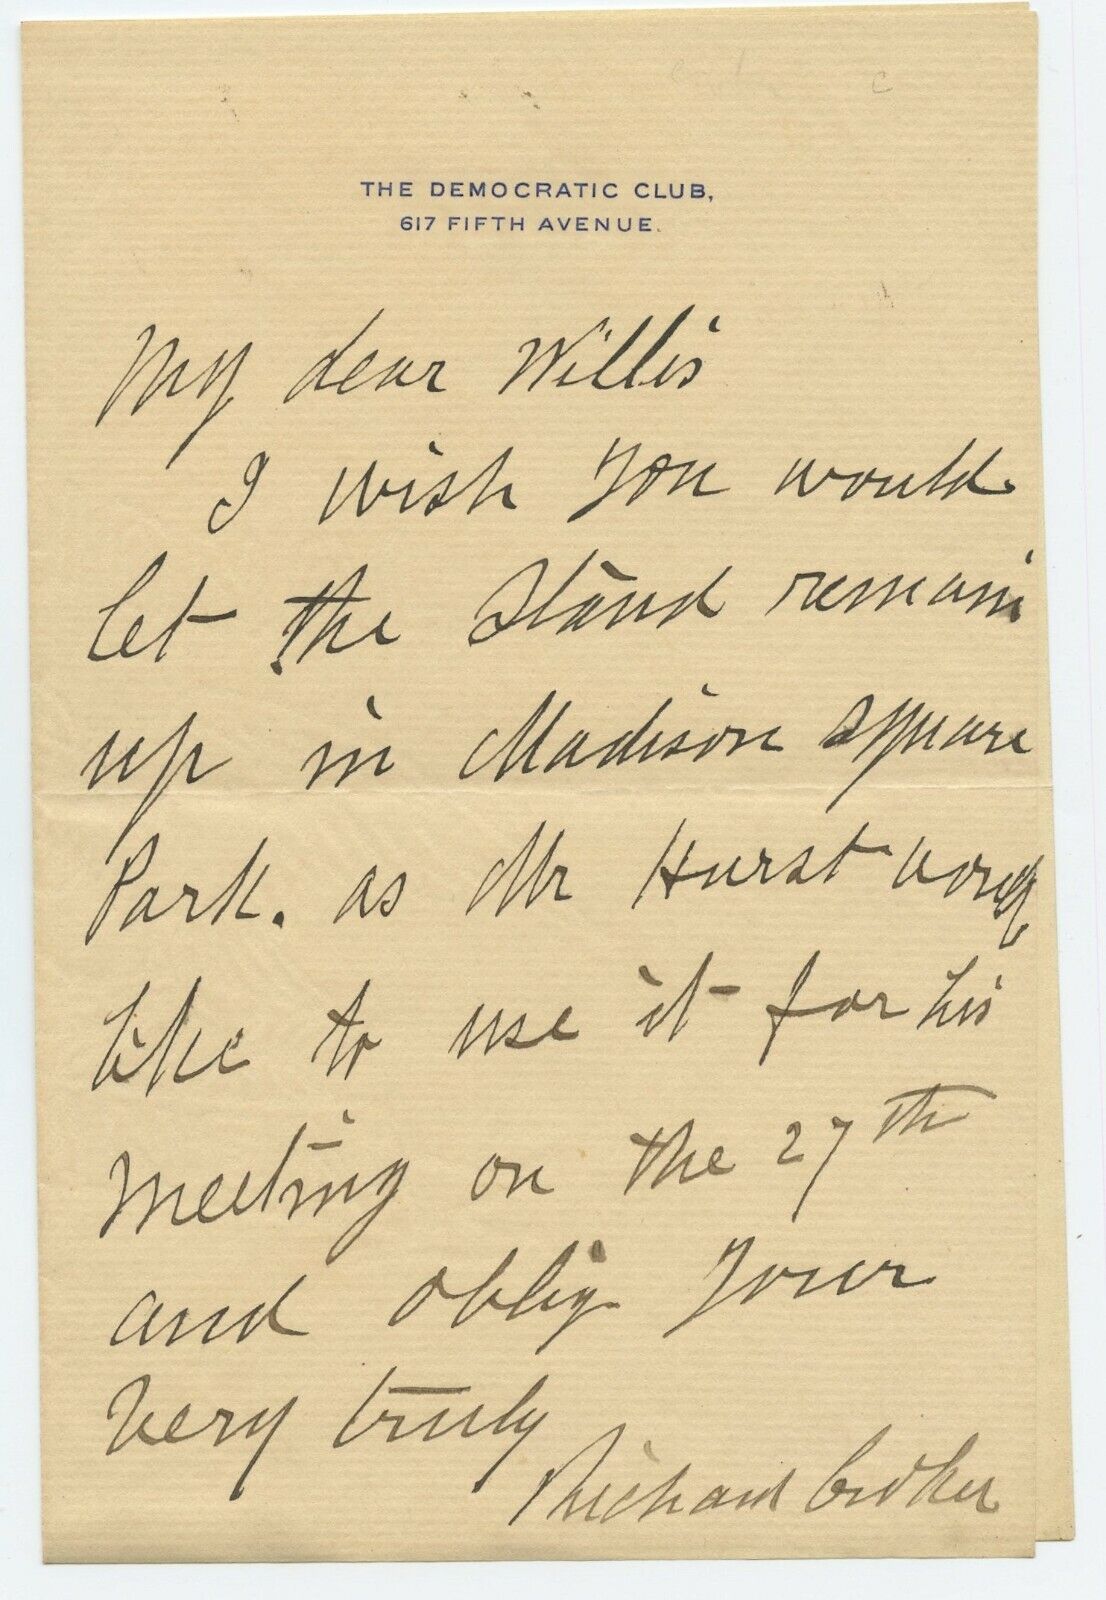 THE DEMOCRATIC CLUB,
617 FIFTH AVENUE.
My dear Willis
I wish you would
let the Stand remain
up in Madison square
Park. as Mr Hurst
like to use it for his
meeting on the 27th
and oblig your
very truly
Richard Croker